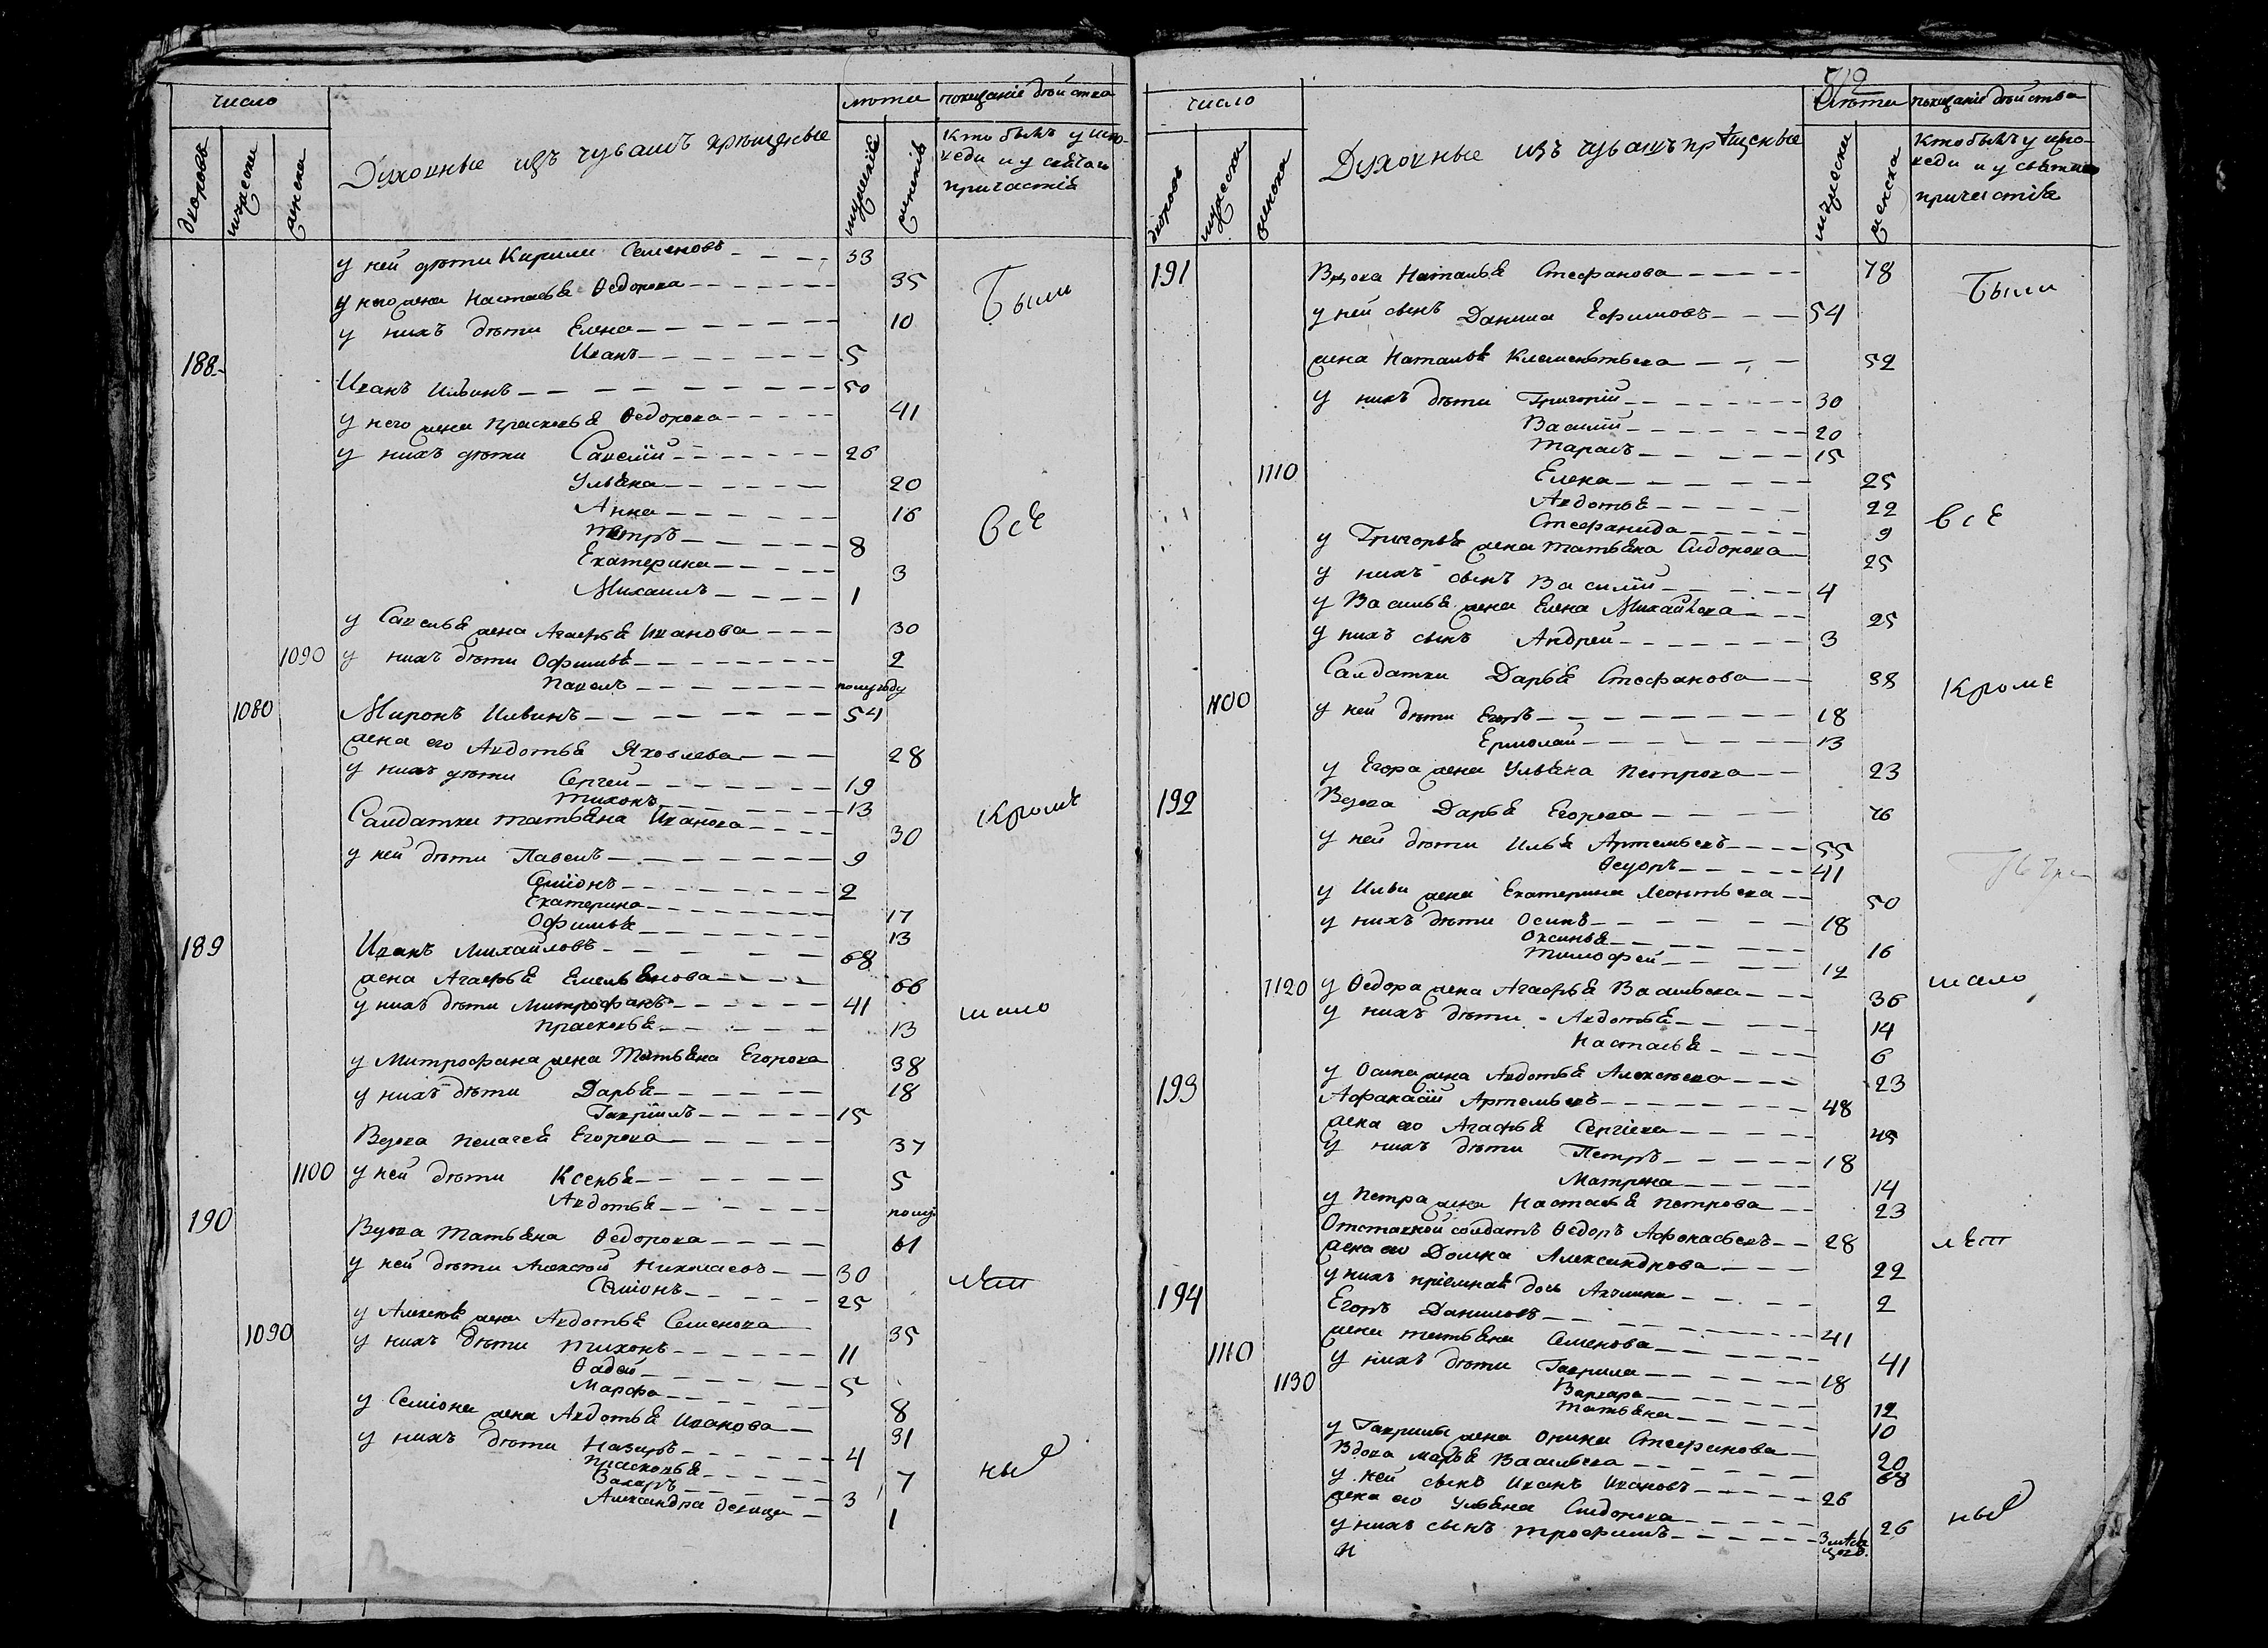 число
дворовъ
мужеска
женска
Духовные изъ чувашъ крещеные
лѣта
мужескіе
женскіе
показаніе дѣйства
Кто былъ у испо-
веди и у святаго
причастія
у ней дѣти Кирила Семеновъ 33
у него жена Настасья Ѳедорова 35
у нихъ дѣти Елена 10
Иванъ 5
Были
188
Иванъ Ильинъ 50
у него жена Прасковья Ѳедорова 41
у нихъ дѣти Савелий 26
Ульяна 20
Анна 16
Петръ 8
Екатерина 3
Михаилъ 1
всѣ
у Савелья жена Агафья Иванова 30
1090 у нихъ дѣти Офимья 2
Павелъ полугоду
1080 Миронъ Ильинъ 54
жена его Авдотья Яковлева 28
у нихъ дѣти Сергей 19
Тихонъ 13
Салдатка Татьяна Иванова 30
кромѣ
у ней дѣти Павелъ 9
Семіонъ 2
Екатерина 17
Офимья 13
189 Иванъ Михайловъ 68
жена Агафья Емельянова 66
у нихъ дѣти Митрофанъ 41
Прасковья 13
мало
у Митрофана жена Татьяна Егорова 38
у нихъ дѣти Дарья 18
Гаврiилъ 15
Вдова Пелагея Егорова 37
1100 у ней дѣти Ксенья 5
Авдотья полу.
190 Вдова Татьяна Ѳедорова 61
у ней дѣти Алексѣй Николаевъ 30
Семіонъ 25
лѣт
у Алексѣя жена Авдотья Семенова 35
1090 у нихъ дѣти Тихонъ 11
Ѳадѣй 5
Марфа 8
у Семіона жена Авдотья Иванова 31
у нихъ дѣти Назаръ 4
Прасковья 7
Захаръ 3
Александра девица 1
ные
число
дворовъ
мужеска
женска
Духовные изъ чувашъ крѣщеные
Лѣта
мужески
женска
показаніе дѣйства
Кто былъ у испо-
веди и у святаго
причастія
191 Вдова Наталья Стефанова 78
Были
у ней сынъ Данила Ефимовъ 54
жена Наталья Клементьева 52
у нихъ дѣти Григорій 30
Василій 20
Тарасъ 15
1110 Елена 25
Авдотья 22
Стефанида 9
всѣ
у Григорья жена Татьяна Сидорова 25
у нихъ сынъ Василій 4
у Василья жена Елена Михайлова 25
у нихъ сынъ Андрей 3
Салдатка Дарья Стефанова 38
Кромѣ
1100 у ней дѣти Егоръ 18
Ермолай 13
у Егора жена Ульяна Петрова 23
192 Вдова Дарья Егорова 76
у ней дѣти Илья Артемьевъ 55
Ѳедоръ 41
у Ильи жена Екатерина Леонтьева 50
у нихъ дѣти Осипъ 18
Оксинья 16
Тимофей 12
1120 у Ѳедора жена Агафья Васильева 36
мало
у нихъ дѣти Авдотья 14
Настасья 6
у Осипа жена Авдотья Алексѣева 23
193 Афанасій Артемьевъ 48
жена его Агафья Сергіева 45
у нихъ дѣти Петръ 18
Матрена 14
у Петра жена Настасья Петрова 23
Отставной солдатъ Ѳедоръ Афонасьевъ 28
лѣт
жена его Домна Александрова 22
у нихъ пріемная дочь Акулина 2
194 Егоръ Даниловъ 41
жена Татьяна Семенова 41
1110 у нихъ дѣти Гаврила 18
1130 Варвара 12
Татьяна 10
у Гаврилы жена Орина Стефанова 20
Вдова Марья Васильева 68
у ней сынъ Иванъ Ивановъ 26
жена его Ульяна Сидорова 26
у нихъ сынъ Трофимъ 3 мѣся цовъ.
ные